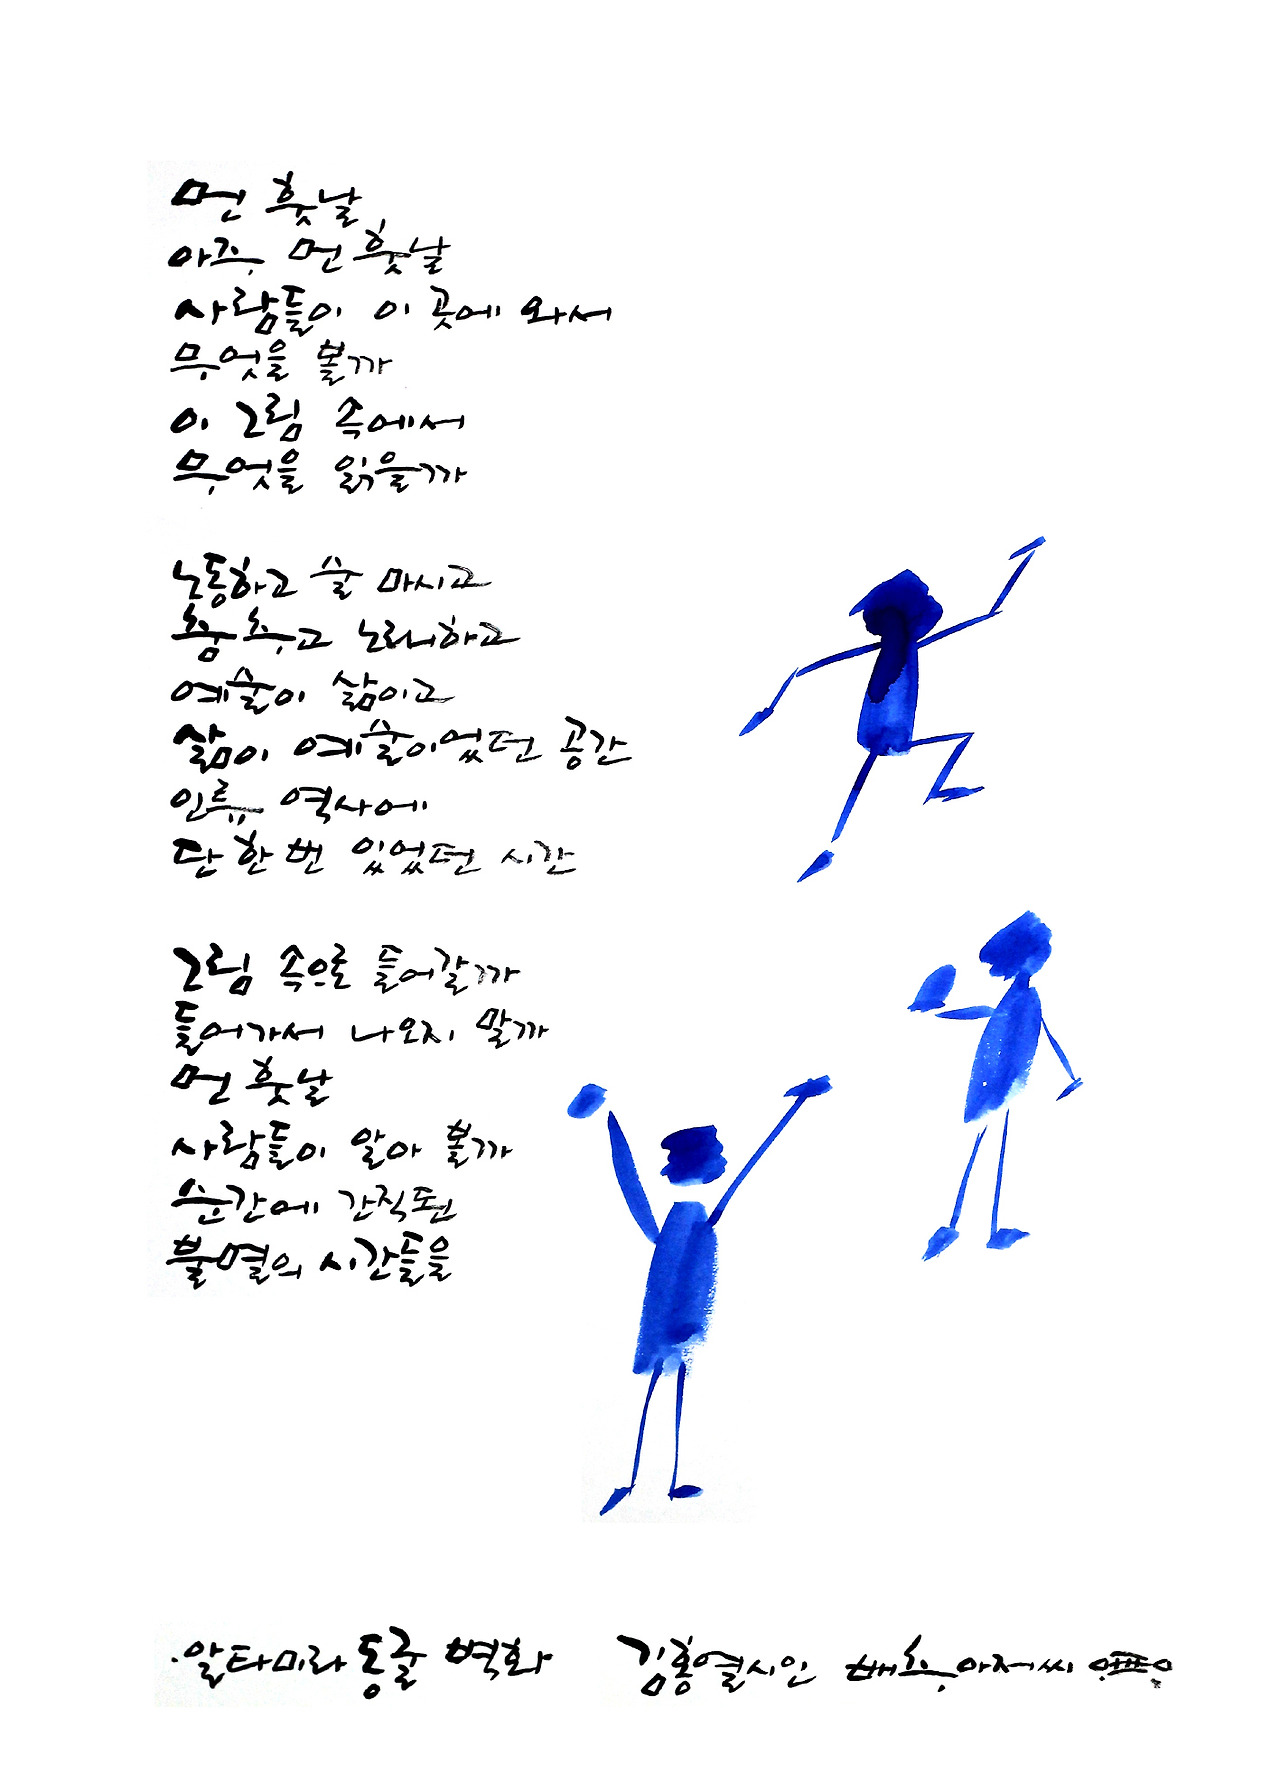 먼 훗날
아주 먼 훗날
사람들이 이 곳에 와서
무엇을 볼까
이 그림 속에서
무엇을 읽을까
노동하고 술 마시고
춤추고 노래하고
예술이 삶이고
삶이 예술이었던 공간
인류 역사에
단 한 번 있었던 시간
그림 속으로 들어갈까
들어가서 나오지 말까
먼 훗날
사람들이 알아 볼까
순간에 간직된
불멸의 시간들을
·알타미라 동굴 벽화 김홍열시인 배추아저씨